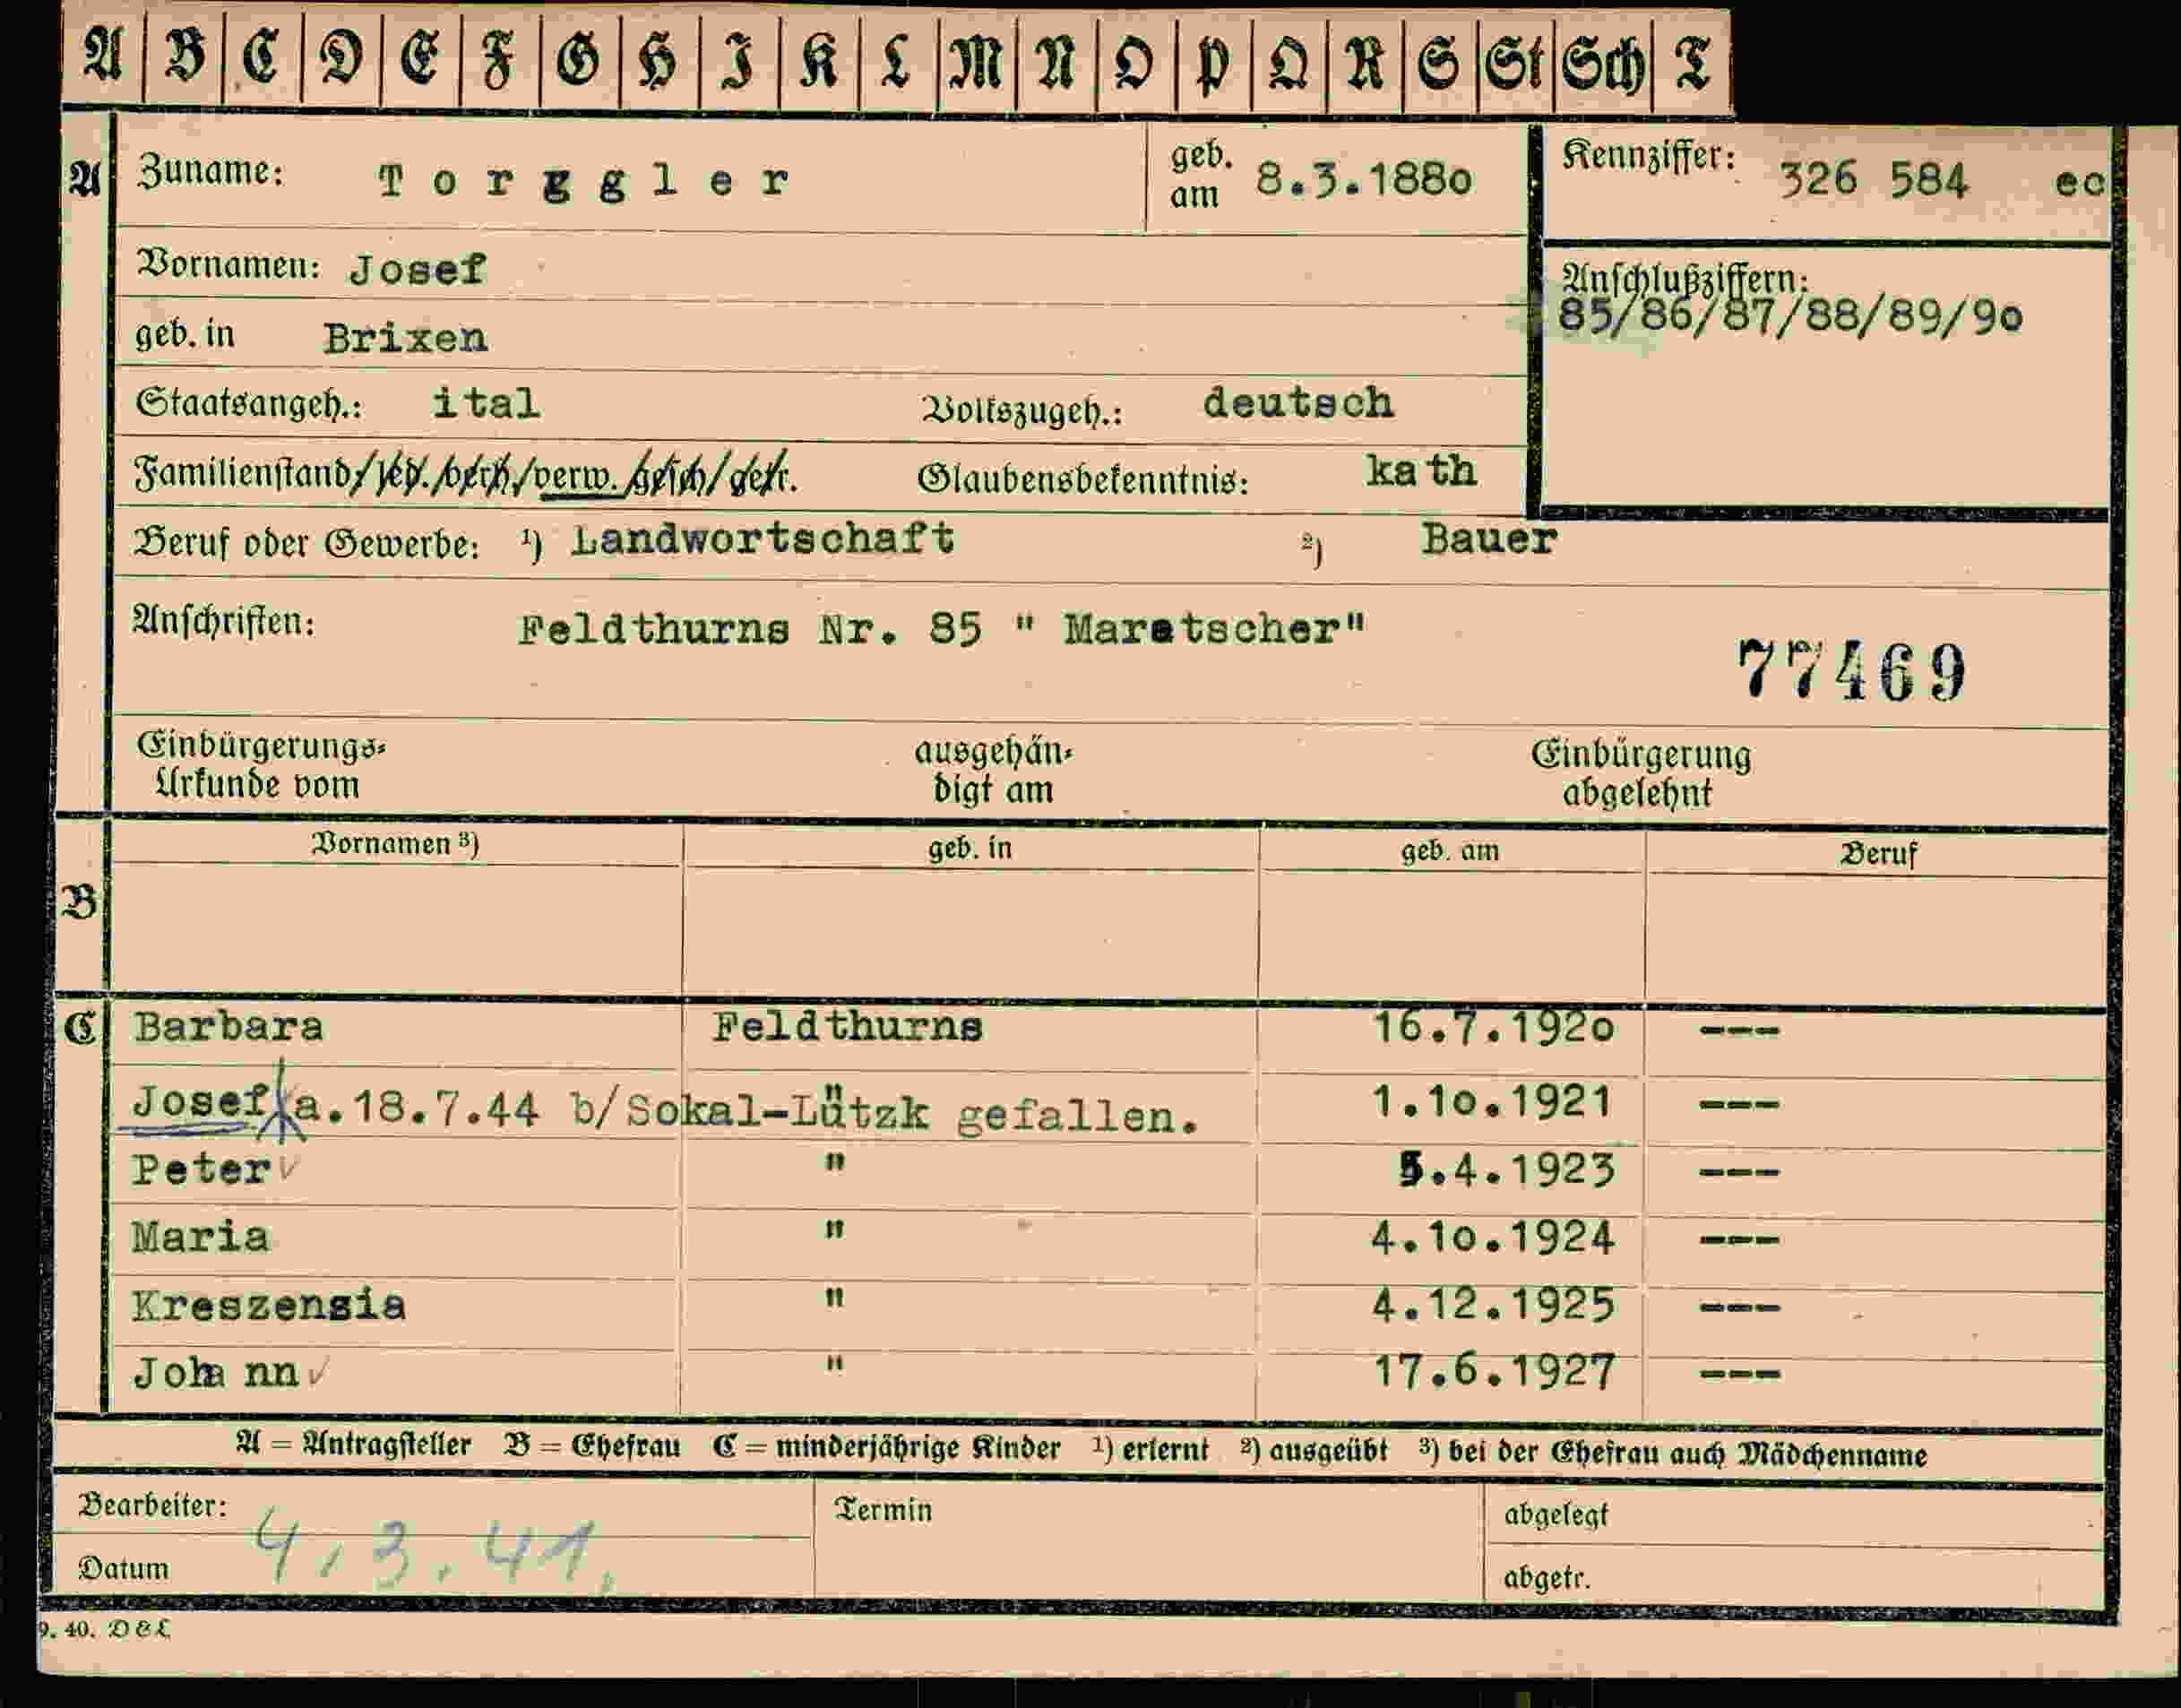 A B C D E F G H I K L M N O P Q R S St Sch T
A Zuname: Torggler geb. am 8.3.1880 Kennziffer: 326 584 ec
Vornamen: Josef
Anschlußziffern:
85/86/87/88/89/90
geb. in Brixen
Staatsangeh.: ital Volkszugeh.: deutsch
Familienstand/led./verh./verw./gesch/getr. Glaubensbekenntnis: kath
Beruf oder Gewerbe: 1) Landwortschaft 2) Bauer
Anschriften: Feldthurns Nr. 85 " Maretscher"
77469
Einbürgerungs- Urkunde vom ausgehän- digt am Einbürgerung abgelehnt
Vornamen 3) geb. in geb. am Beruf
B
C Barbara Feldthurns 16.7.1920 ---
Josef a.18.7.44 b/Sokal-Lützk gefallen. " 1.10.1921 ---
Peter " 5.4.1923 ---
Maria " 4.10.1924 ---
Kreszensia " 4.12.1925 ---
Johann " 17.6.1927 ---
A = Antragsteller B = Ehefrau C = minderjährige Kinder 1) erlernt 2) ausgeübt 3) bei der Ehefrau auch Mädchenname
Bearbeiter: Termin abgelegt
Datum 4.3.41. abgetr.
9. 40. D & L